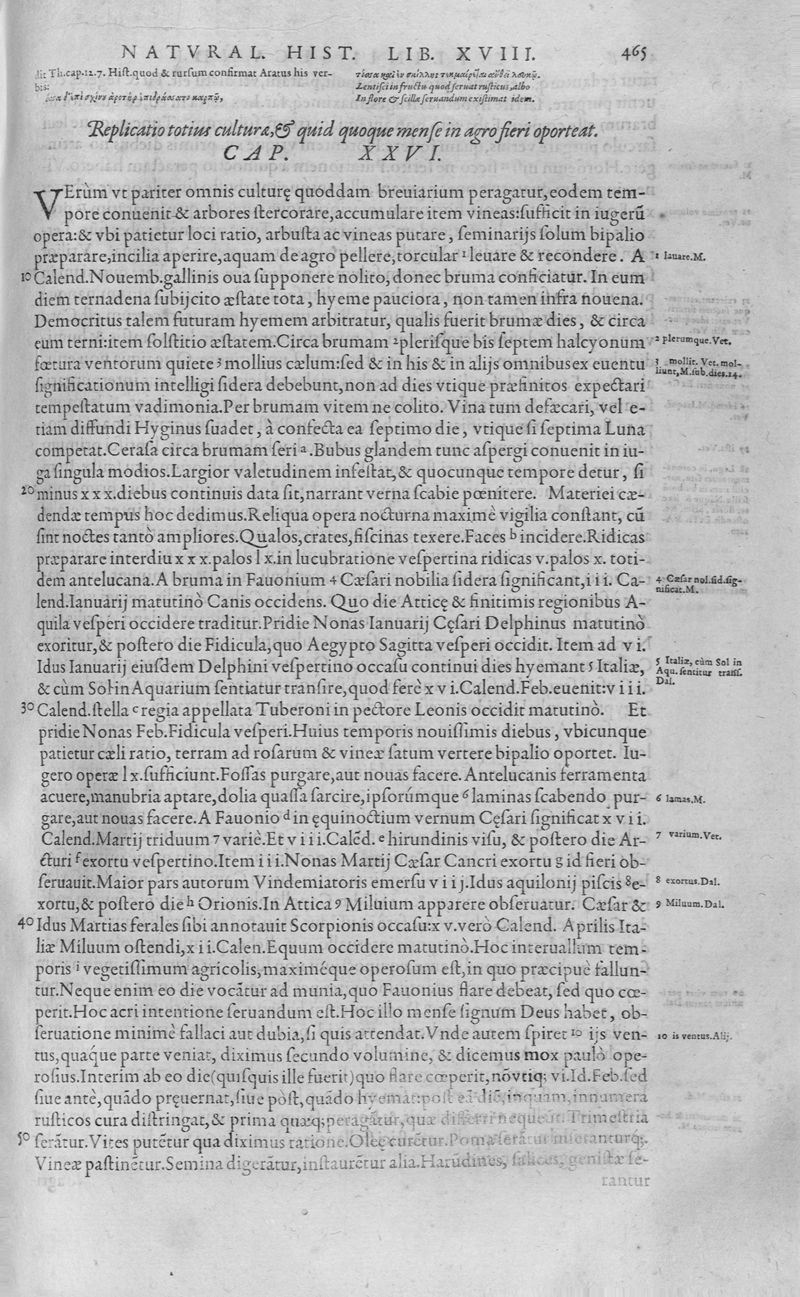 NATVRAL. HIST. LIB. XVIII. 465
dit Th.cap.12.7. Hiſt.quod & rurſum confirmat Aratus his ver-
bis:
Lentiſci in fructu quod ſeruat ruſticus, albo
In flore & ſcilla ſeruandum exiſtimat idem.
Replicatio totius culturæ,& quid quoque menſe in agro fieri oporteat.
CAP. XXVI.
VErùm vt pariter omnis culturę quoddam breuiarium peragatur,eodem tem-
pore conuenit & arbores ſtercorare,accumulare item vineas:ſufficit in iugerū
opera:& vbi patietur loci ratio, arbuſta ac vineas putare, ſeminarijs ſolum bipalio
præparare,incilia aperire,aquam de agro pellere,torcular ¹ leuare & recondere. A
1 lauare.M.
10 Calend.Nouemb.gallinis oua ſupponere nolito, donec bruma conficiatur. In eum
diem ternadena ſubijcito æſtate tota, hyeme pauciora, non tamen infra nouena.
Democritus talem futuram hyemem arbitratur, qualis fuerit brumæ dies, & circa
eum terni:item ſolſtitio æſtatem.Circa brumam ²pleriſque bis ſeptem halcyonum
2 plerumque.Vet.
fœtura ventorum quiete ³ mollius cælum:ſed & in his & in alijs omnibus ex euentu
3 mollit. Vet. mol-
liunt,M.ſub.dies.14.
ſignificationum intelligi ſidera debebunt,non ad dies vtique præfinitos expectari
tempeſtatum vadimonia.Per brumam vitem ne colito. Vina tum defæcari, vel e-
tiam diffundi Hyginus ſuadet, à confecta ea ſeptimo die, vtique ſi ſeptima Luna
competat.Ceraſa circa brumam ſeri ᵃ.Bubus glandem tunc aſpergi conuenit in iu-
ga ſingula modios.Largior valetudinem infeſtat,& quocunque tempore detur, ſi
20 minus xxx.diebus continuis data ſit,narrant verna ſcabie pœnitere. Materiei cæ-
dendæ tempus hoc dedimus.Reliqua opera nocturna maximè vigilia conſtant, cū
ſint noctes tantò ampliores.Qualos,crates,fiſcinas texere.Faces ᵇ incidere.Ridicas
præparare interdiu xxx.palos lx.in lucubratione veſpertina ridicas v.palos x. toti-
dem antelucana.A bruma in Fauonium ⁴ Cæſari nobilia ſidera ſignificant,iii. Ca-
4 Cæſar nol.ſid.ſig-
nificat.M.
lend.Ianuarij matutinò Canis occidens. Quo die Atticę & finitimis regionibus A-
quila veſperi occidere traditur.Pridie Nonas Ianuarij Cęſari Delphinus matutinò
exoritur,& poſtero die Fidicula,quo Aegypto Sagitta veſperi occidit. Item ad vi.
Idus Ianuarij eiuſdem Delphini veſpertino occaſu continui dies hyemant ⁵ Italiæ,
5 Italiæ, cùm Sol in
Aqu. ſentitur tranſ.
Dal.
& cùm Sol in Aquarium ſentiatur tranſire,quod ferè xvi.Calend.Feb.euenit:viii.
30 Calend.ſtella ᶜ regia appellata Tuberoni in pectore Leonis occidit matutinò. Et
pridie Nonas Feb.Fidicula veſperi.Huius temporis nouiſſimis diebus, vbicunque
patietur cæli ratio, terram ad roſarum & vineæ ſatum vertere bipalio oportet. Iu-
gero operæ lx.ſufficiunt.Foſſas purgare,aut nouas facere. Antelucanis ferramenta
acuere,manubria aptare,dolia quaſſa ſarcire,ipſorúmque ⁶ laminas ſcabendo pur-
6 lamas.M.
gare,aut nouas facere.A Fauonio ᵈ in ęquinoctium vernum Cęſari ſignificat xvii.
Calend.Martij triduum ⁷ variè.Et viii.Calēd. ᵉ hirundinis viſu, & poſtero die Ar-
7 varium.Vet.
cturi ᶠ exortu veſpertino.Item iii.Nonas Martij Cæſar Cancri exortu g id fieri ob-
ſeruauit.Maior pars autorum Vindemiatoris emerſu viij.Idus aquilonij piſcis ⁸ e-
8 exortus.Dal.
xortu,& poſtero die ʰ Orionis.In Attica ⁹ Miluium apparere obſeruatur. Cæſar &
9 Miluum.Dal.
40 Idus Martias ferales ſibi annotauit Scorpionis occaſu:xv.verò Calend. Aprilis Ita-
liæ Miluum oſtendi,xii.Calen.Equum occidere matutinò.Hoc interuallum tem-
poris ⁱ vegetiſſimum agricolis,maximéque operoſum eſt,in quo præcipuè fallun-
tur.Neque enim eo die vocātur ad munia,quo Fauonius flare debeat, ſed quo cœ-
perit.Hoc acri intentione ſeruandum eſt.Hoc illo menſe ſignum Deus habet, ob-
ſeruatione minimè fallaci aut dubia,ſi quis attendat.Vnde autem ſpiret ¹⁰ ijs ven-
10 is ventus.Alij.
tus,quaque parte veniat, diximus ſecundo volumine, & dicemus mox paulò ope-
roſius.Interim ab eo die(quiſquis ille fuerit)quo flare cœperit,nōvtiq; vi.Id.Feb.ſed
ſiue antè,quādo pręuernat,ſiue pòſt,quādo hyemat:poſt eū diē, inquam, innumera
ruſticos cura diſtringat,& prima quæq;peragātur,quæ differri nequeūt. Trimeſtria
50 ſerātur.Vites putētur qua diximus ratione.Oleę curētur.Poma ſerātur
Vineæ paſtinētur.Semina digerātur,inſtaurētur alia.Harūdines, ſalices, geniſtæ ſe-
rantur